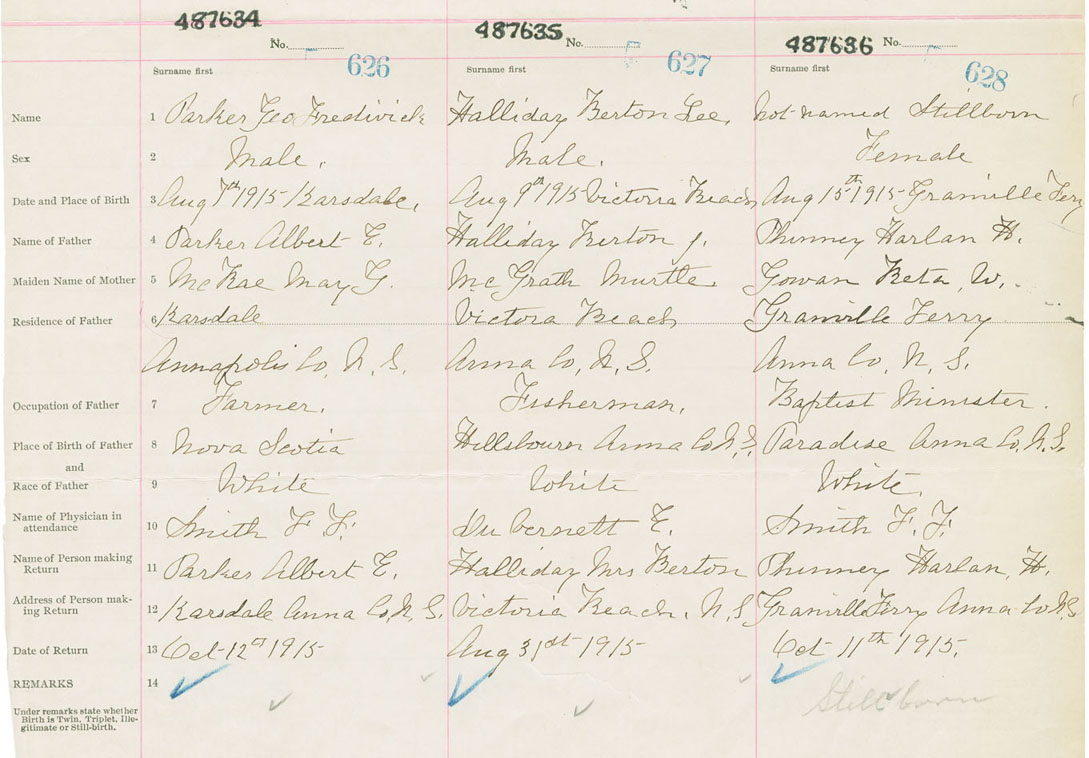 487634 487635 487636
No. No. No.
626 627 628
Surname first Surname first Surname first
Name 1 Parker Geo Fredivick Halliday Berton Lee. Not named Stillborn
Sex 2 Male. Male. Female
Date and Place of Birth 3 Aug 7th 1915 Karsdale. Aug 9th 1915 Victoria Beach Aug 15th 1915 Granville Ferry
Name of Father 4 Parker Albert E. Halliday Berton J. Phinney Harlan H.
Maiden Name of Mother 5 McRae May G. McGrath Murtle Gowan Reta W.
Residence of Father 6 Karsdale Victora Beach Granville Ferry
Annapolis Co, N, S. Anna Co, N, S. Anna Co, N, S.
Occupation of Father 7 Farmer. Fisherman. Baptist Minister.
Place of Birth of Father 8 Nova Scotia Anna Co N, S. Paradise Anna Co, N. S.
and
Race of Father 9 White White White.
Name of Physician in
attendance 10 Smith F. F. E. Smith F. F.
Name of Person making
Return 11 Parker Albert E. Halliday Mrs Berton Phinney Harlan, H.
Address of Person mak-
ing Return 12 Karsdale Anna Co, N, S. Victoria Beach, N, S Granville Ferry Anna Co N, S
Date of Return 13 Oct 12th 1915 Aug 31st 1915 Oct 11th 1915.
REMARKS 14 Stillborn
Under remarks state whether
Birth is Twin, Triplet, Ille-
gitimate or Still-birth.